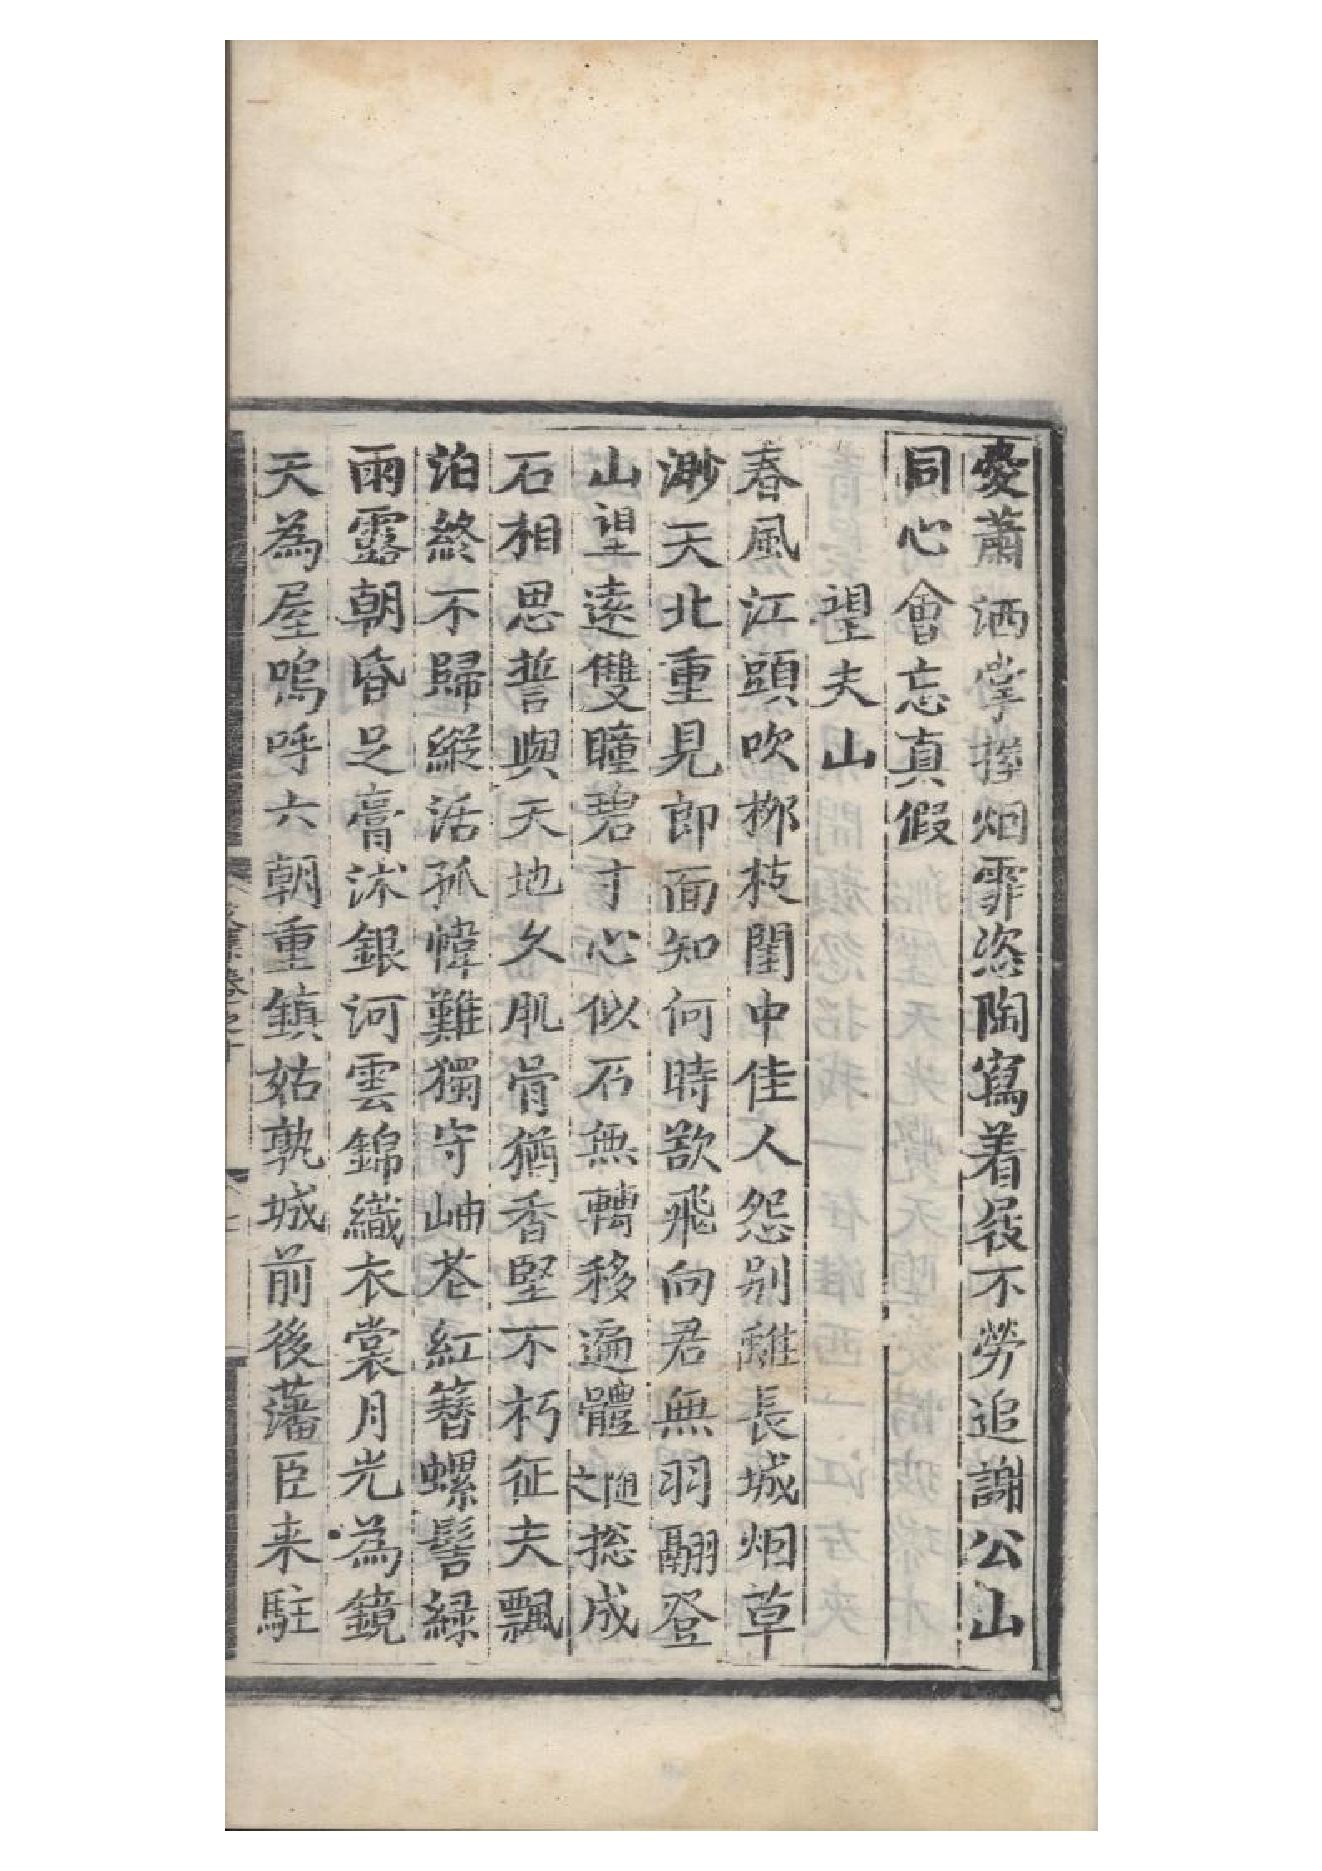 愛蕭洒掌握烟霏恣陶寫着屐不勞追謝公山
同心會忘真假
望夫山
春風江頭吹栁枝閨中佳人怨别離長城烟草
渺天北重見郎面知何時欲飛向君無羽翮登
山望遠雙瞳碧寸心似石無轉移遍體随之揔成
石相思誓與天地久肌骨猶香堅不朽征夫飄
泊終不歸縱活孤幃難獨守岫花紅簪螺髻緑
雨露朝昏足膏沐銀河雲錦織衣裳月光為鏡
天為屋嗚呼六朝重鎮姑孰城前後藩臣来駐